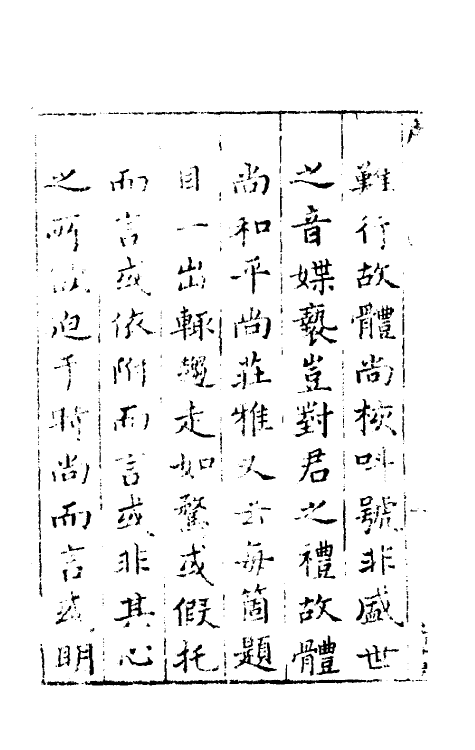 難行故體尚核呌號非盛世
之音媟褻豈對君之禮故體
尚和平尚莊雅又云每箇題
目一出輙趨走如騖或假托
而言或依附而言或非其心
之所欲迫于時尚而言或明